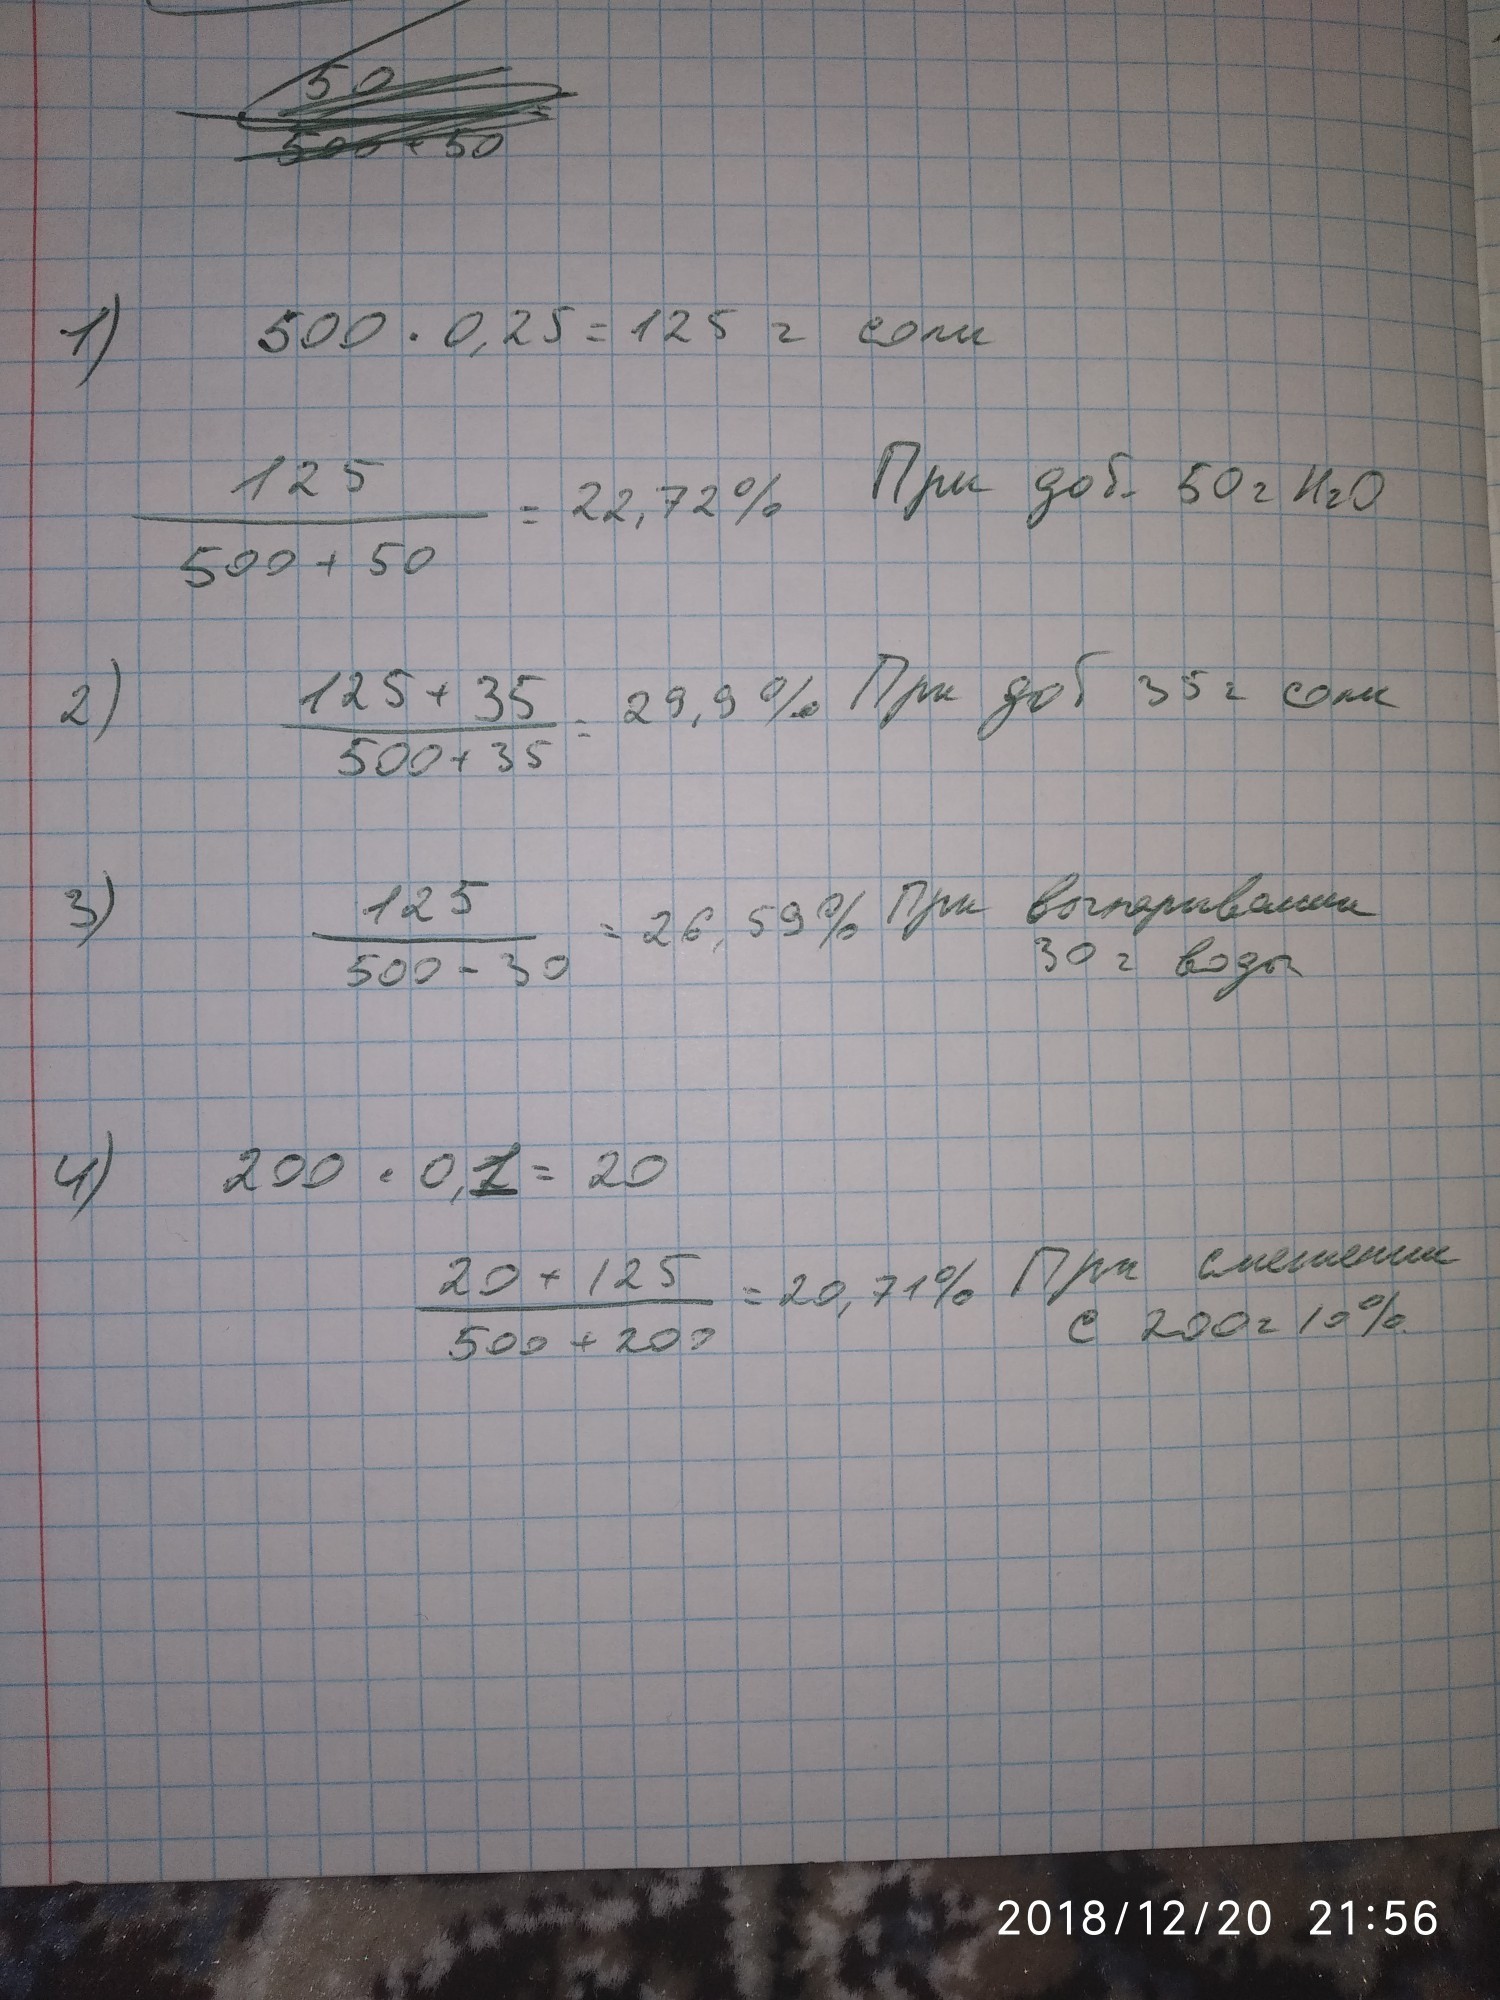 50
500 + 50
1) 500 · 0,25 = 125 г соли
125
500 + 50
= 22,72% При доб. 50г H2O
2) 125 + 35
500 + 35
= 29,9% При доб 35г соли
3) 125
500 - 30
= 26,59% При выпаривании
30г воды
4) 200 · 0,1 = 20
20 + 125
500 + 200
= 20,71% При смешении
с 200г 10%
2018/12/20 21:56